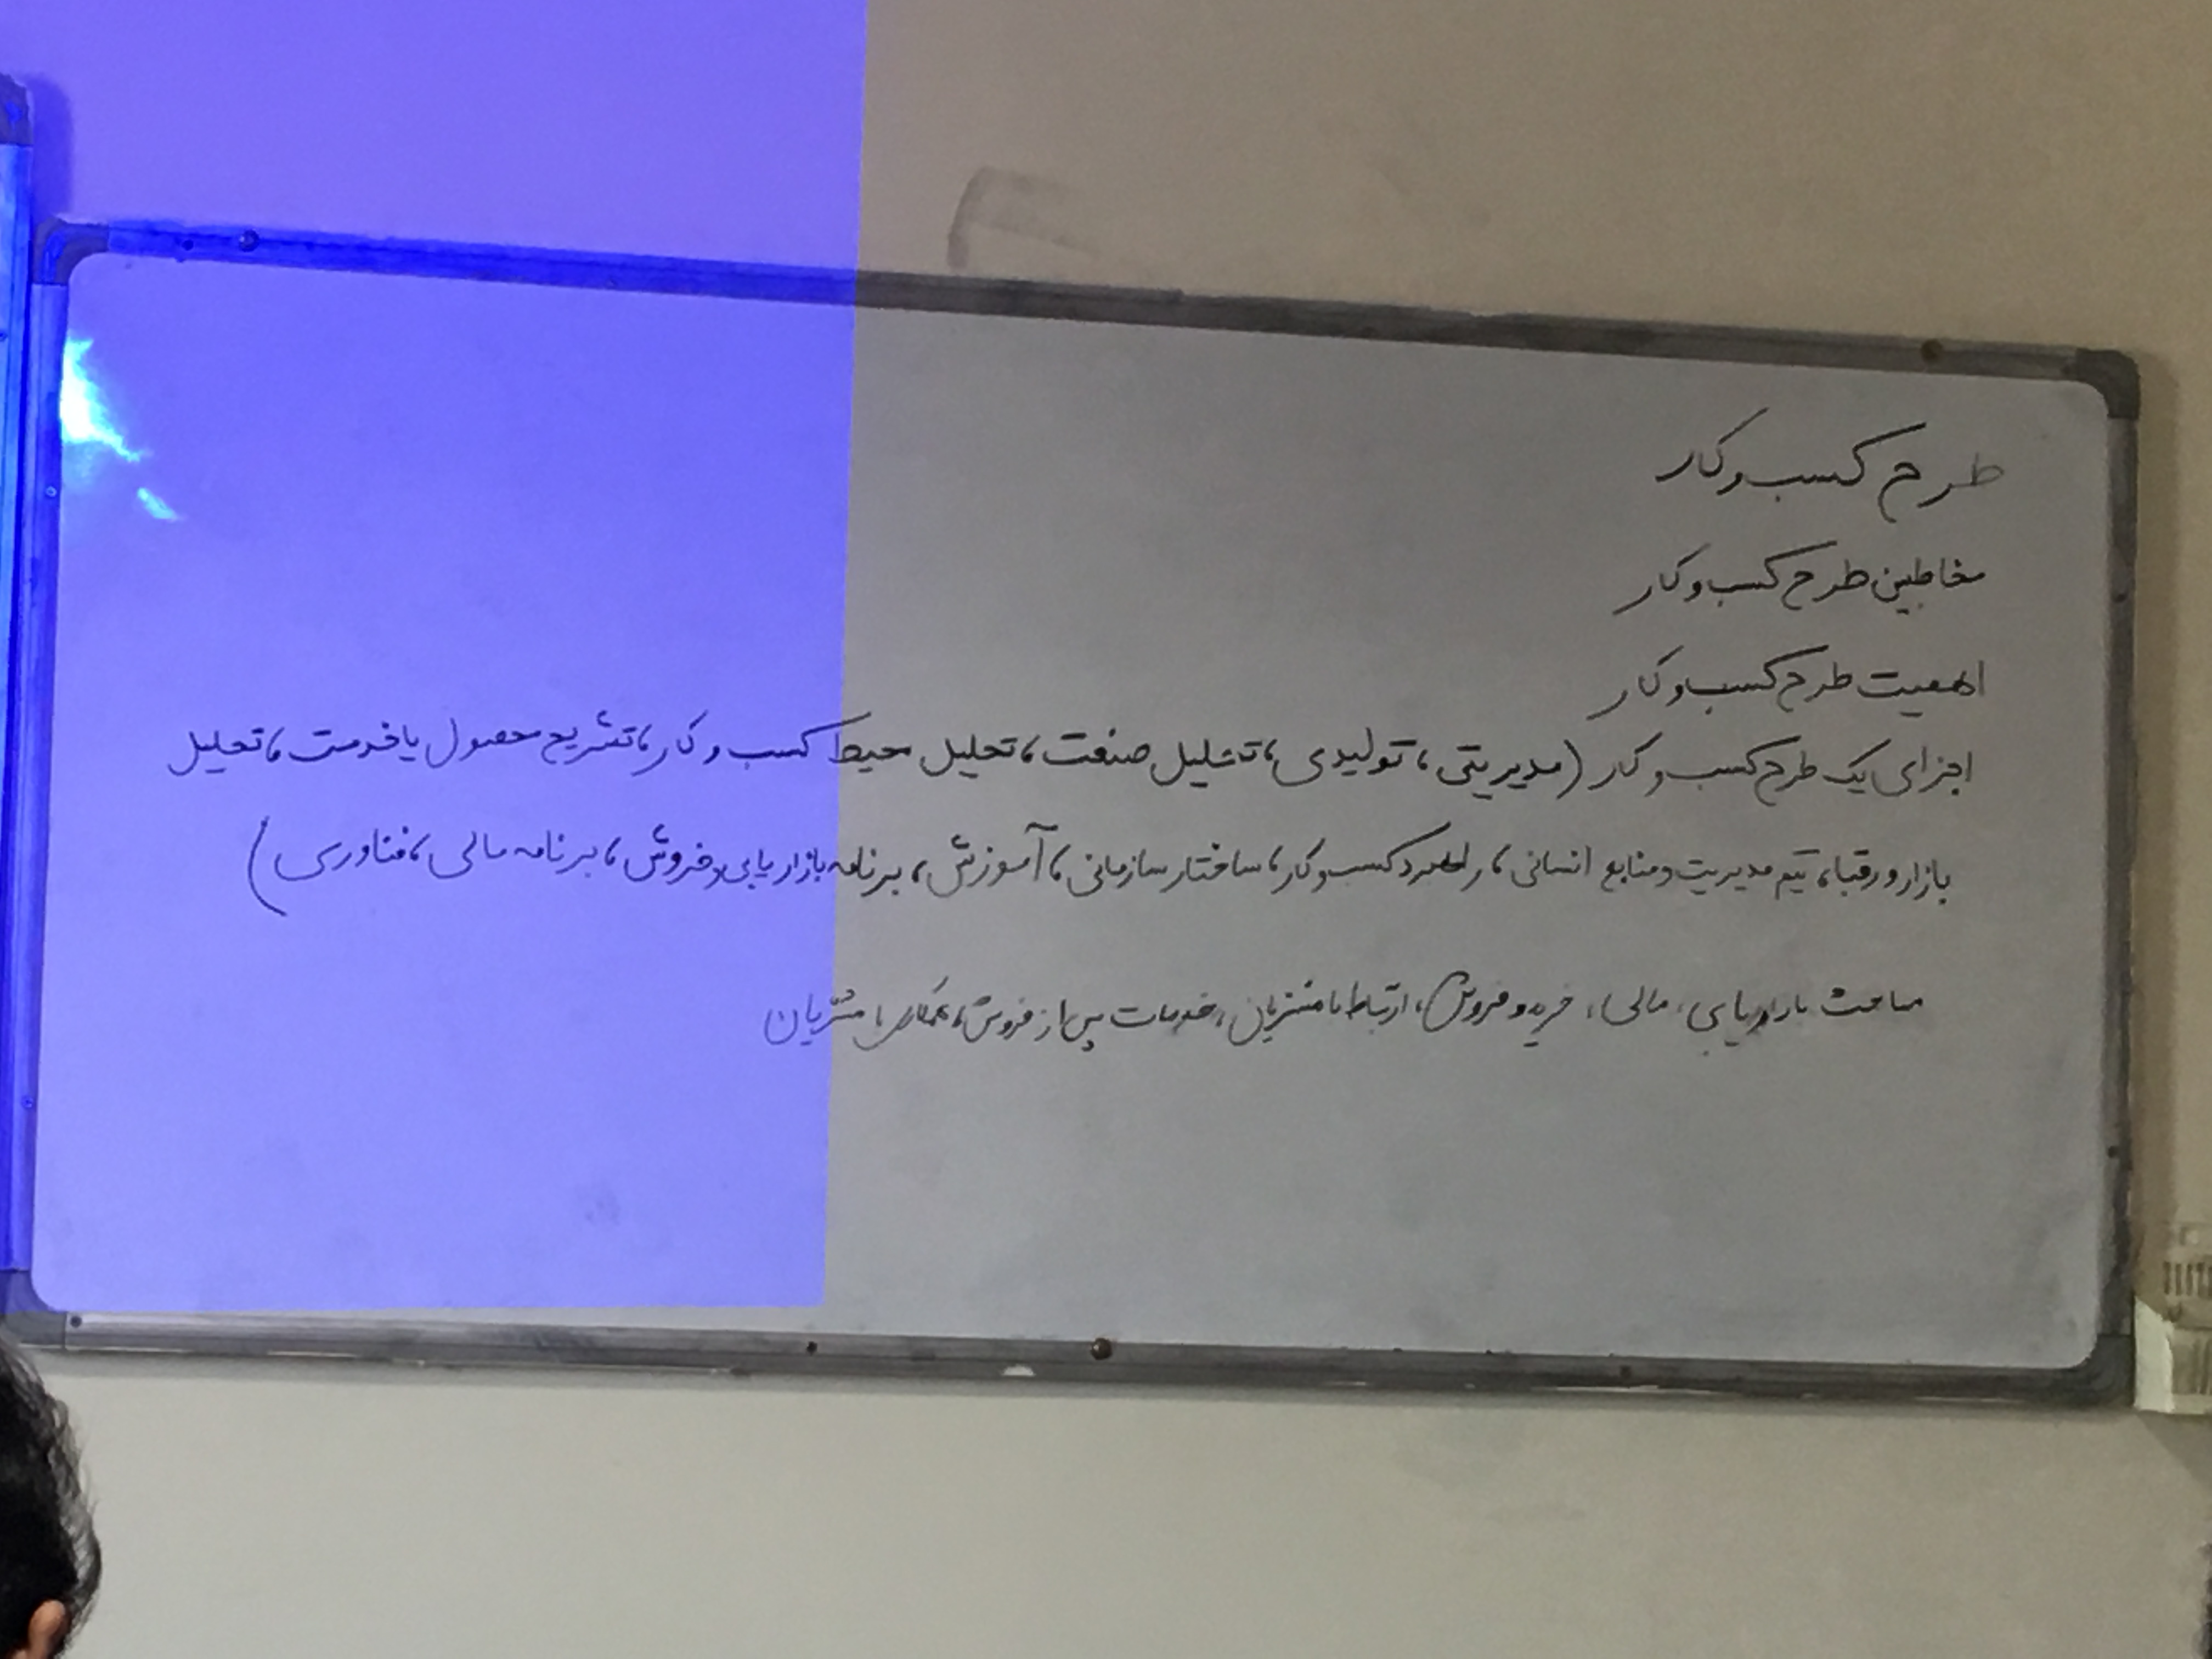 طرح کسب و کار
مخاطبین طرح کسب و کار
اهمیت طرح کسب و کار
اجزای یک طرح کسب و کار (مدیریتی، تولیدی، تشلیل صنعت، تحلیل محیط کسب و کار، تشریح محصول یا خدمت، تحلیل
بازار و رقبا، تیم مدیریت و منابع انسانی، راهبرد کسب و کار، ساختار سازمانی، آموزش، برنامه بازاریابی و فروش، برنامه مالی، فناوری)
مباحث بازاریابی، مالی، خرید و فروش، ارتباط با مشتریان، خدمات پس از فروش، با مشتریان